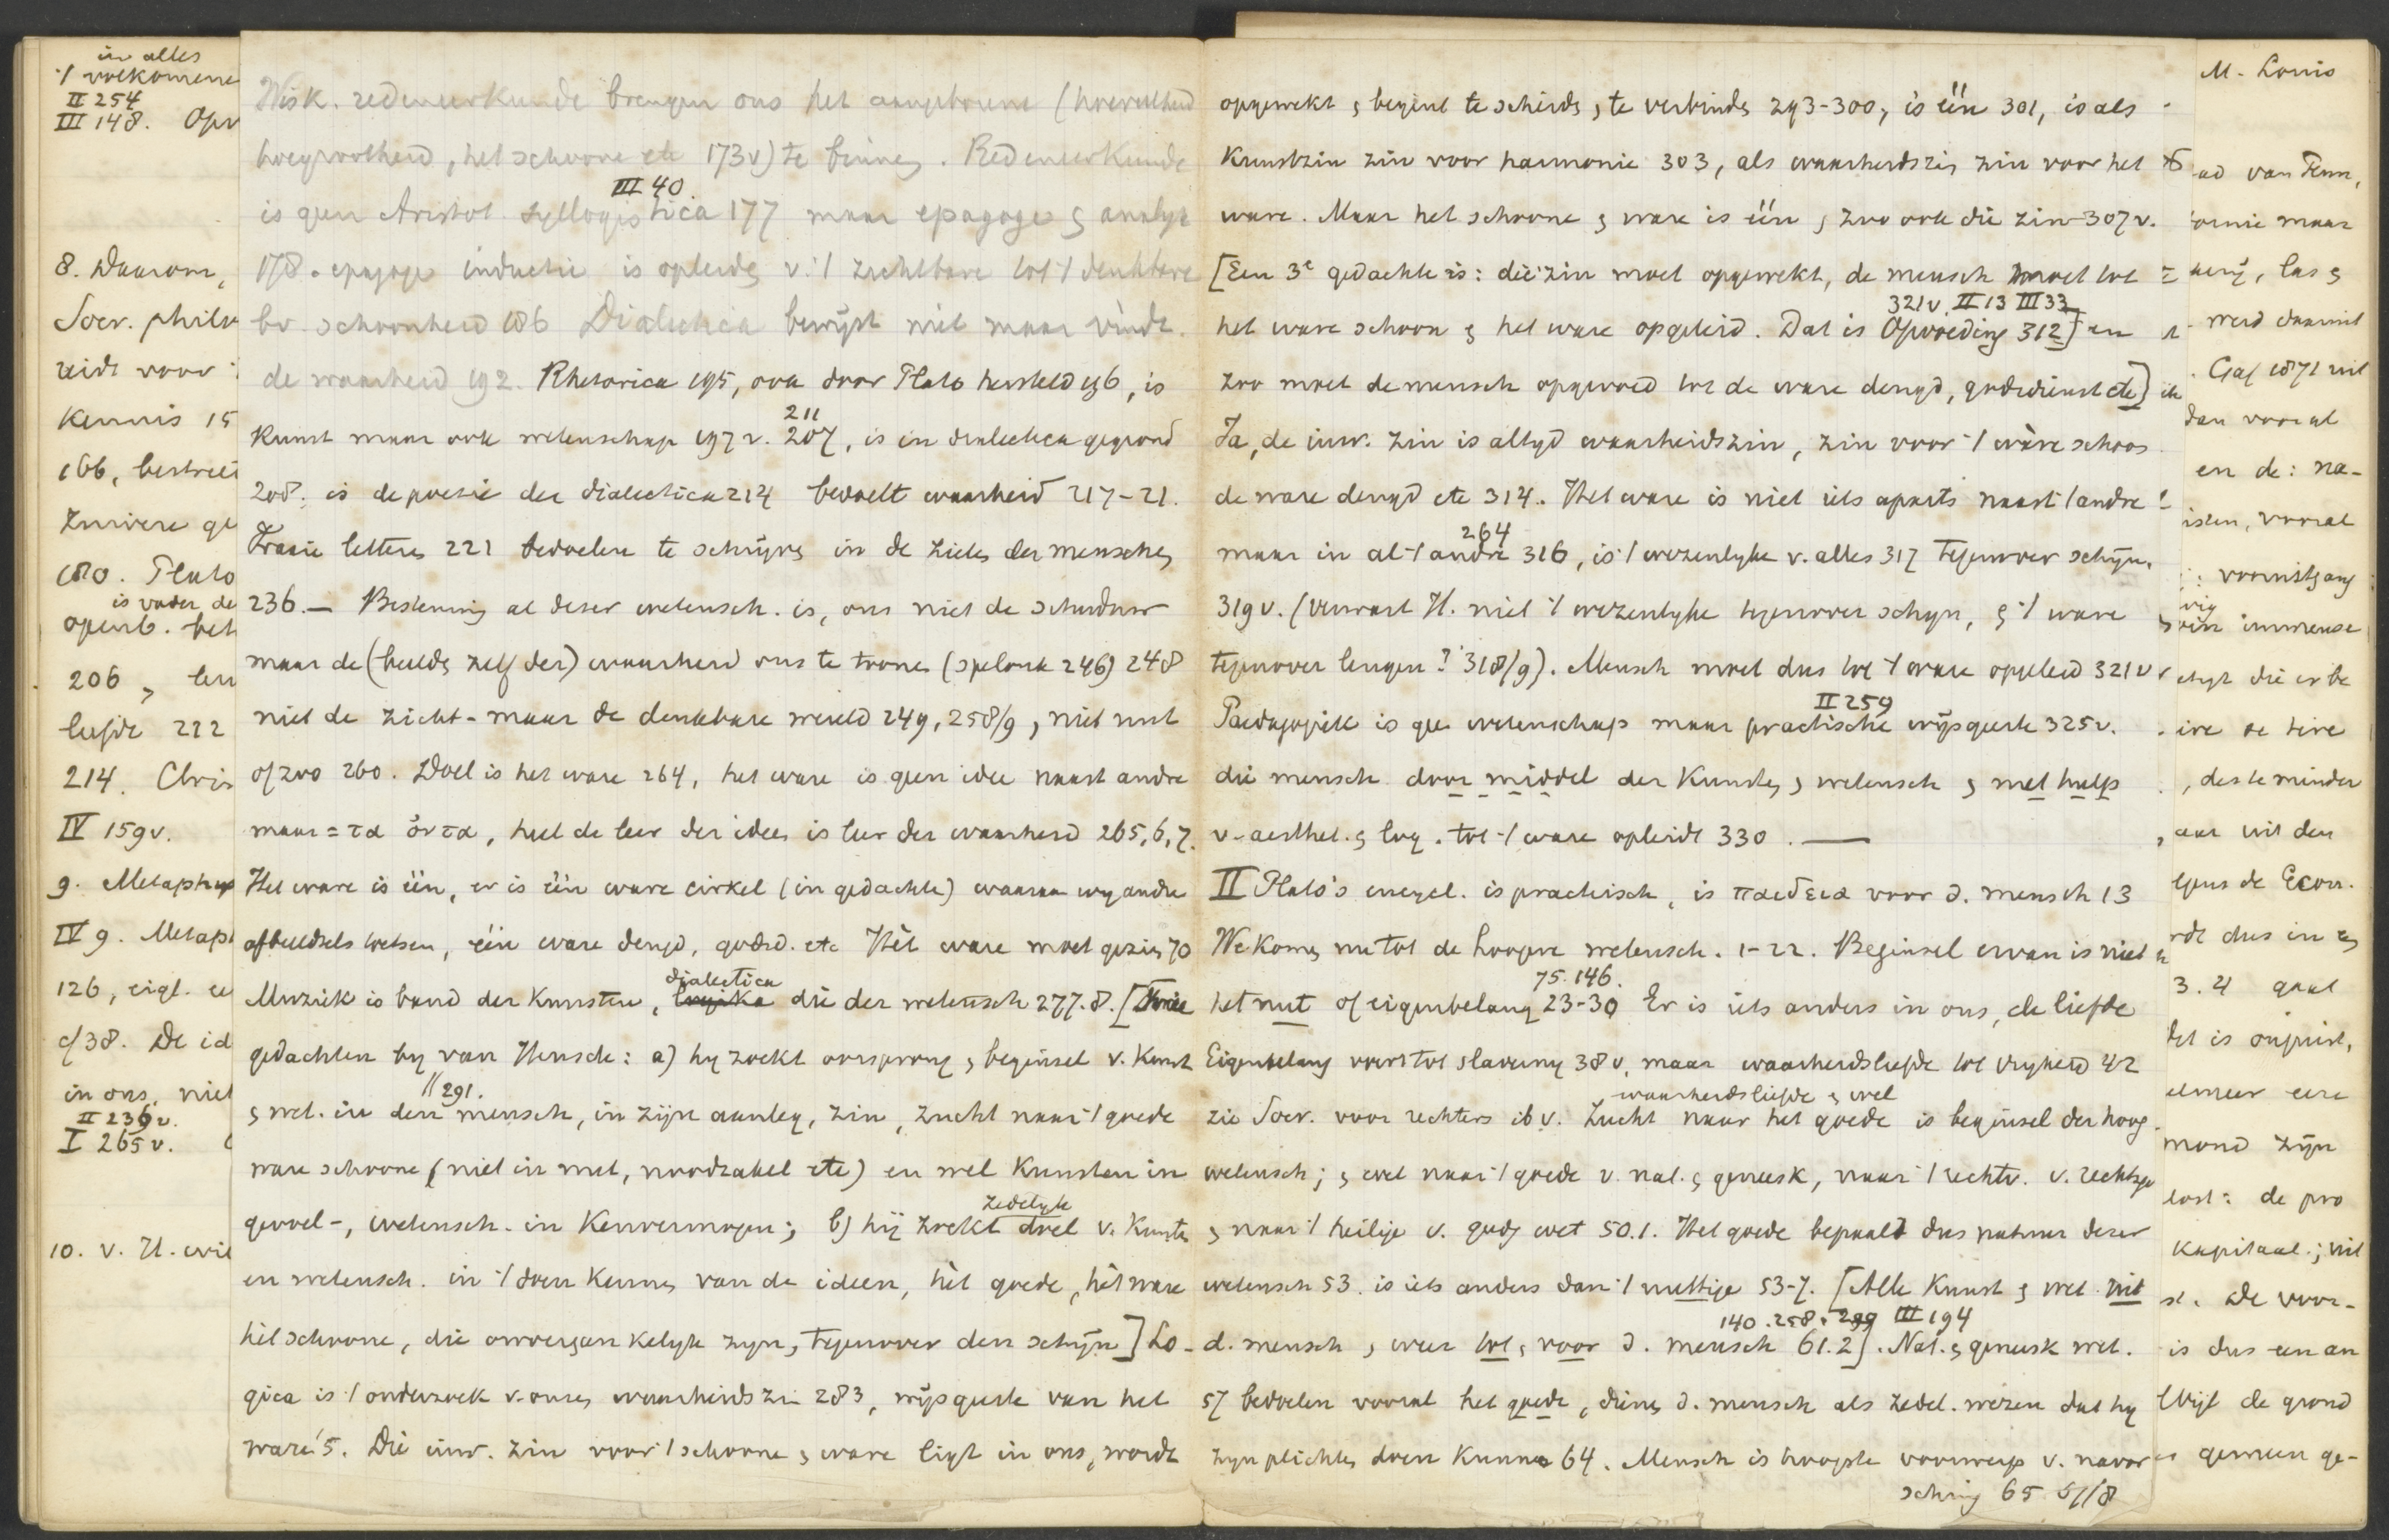 in alles
'/ volkomene
II 254
III 148. Opv
8. Daarom,
Socr. philo
reidt voor
Kennis 15
166, bestreed
zuivere ge
180. Plato
is vader de
openb. beh
206, leer
liefde 212
214. Chris
IV 159v.
9. Metaphys
IV 9. Metaph
126, eigl. ee
c/38. De id
in ons, niet
II 236v.
I 265v.
10. v. H. wil
Wisk. redeneerkunde brengen ons het aangeborene (hoeveelheid
hoegrootheid, het schoone etc 173v) te binnen. Redeneerkunde
III 40.
is geen Aristot. syllogistica 177 maar epagoge en analyt
178. epagoge inductie is opleiden v. '/ zichtbare tot '/ denkbare
bv. schoonheid 186 Dialectica bewijst niet maar vindt
de waarheid 192. Rhetorica 195, ook door Plato hersteld 196, is
211
Kunst maar ook wetenschap 197v. 207, is in dialectica gegrond
208. is de poesie der dialectica 214 bedoelt waarheid 217-21.
Fraaie letteren 221 bedoelen te schrijven in de zielen der menschen
236.— Bestemming al dezer wetensch. is, ons niet de schaduw
maar de (beelden zelf der) waarheid ons te tonen (spelonk 246) 248
niet de zicht- maar de denkbare wereld 249, 258/9, niet nut
of zoo 260. Doel is het ware 264, het ware is geen idee naast andre
maar = τα ὄντα, heel de leer der ideen is leer der waarheid 265,6,7.
Het ware is één, er is één ware cirkel (in gedachte) waarvan wy andre
afbeeldsels hebben, één ware deugd, godsd. etc Hét ware moet gezien 70
dialectica
Muziek is band der Kunsten, logika die der wetensch 277.8. [Twee
gedachten by van Heusde: a) hy zoekt oorsprong en beginsel v. Kunst
// 291.
en wet. in den mensch, in zijn aanleg, zin, zucht naar '/ goede
ware schoone (niet in nut, noodzakel etc) en wel Kunsten in
zedelyke
gevoel-, wetensch. in Kenvermogen; b) hij zoekt doel v. Kunsten
en wetensch. in '/ doen Kennen van de ideen, hèt goede, hèt ware
hèt schoone, die onvergankelyk zyn, tegenover den schijn] Lo-
gica is '/ onderzoek v. onzen waarheidszin 283, wijsgeerte van het
ware 5. Die inw. zin voor '/ schoone en ware ligt in ons, wordt
opgewekt en begint te scheiden, te verbinden 293-300, is één 301, is als
Kunstzin zin voor harmonie 303, als waarheidszin zin voor het
ware. Maar het schoone en ware is één, zoo ook die zin 307v.
[Een 3e gedachte is: die zin moet opgewekt, de mensch moet tot
321v. II 13 III 33
het ware schoon en het ware opgeleid. Dat is Opvoeding 312] en
zoo moet de mensch opgevoed tot de ware deugd, godsdienst etc]
Ja, de inw. zin is altyd waarheidszin, zin voor '/ wàre schoon
de ware deugd etc 314. Het ware is niet iets aparts naast '/ andre
264
maar in al '/ andre 316, is '/ wezenlyke v. alles 317 tegenover schijn.
319v. (Verwart H. niet '/ wezenlyke tegenover schyn, en '/ ware
tegenover leugen? 318/9). Mensch moet dus tot '/ ware opgeleid 321v
II 259
Paedagogiek is geen wetenschap maar practische wijsgeerte 325v.
die mensch door middel der Kunsten, en wetensch en met hulp
v. aesthet. en log. tot '/ ware opleidt 330. —
II Plato's encycl. is practisch, is παιδεια voor d. mensch 13
We komen nu tot de hoogere wetensch. 1-22. Beginsel ervan is niet
75. 146.
het nut of eigenbelang 23-30 Er is iets anders in ons, de liefde
Eigenbelang voert tot slaverny 38v, maar waarheidsliefde tot vryheid 42
waarheidsliefde en wel
zie Socr. voor rechters ib v. Zucht naar het goede is beginsel der hoog.
wetensch; en wel naar '/ goede v. nat. en geneesk, naar '/ rechtv. v. rechtsge
en naar '/ heilige v. godg wet 50.1. Het goede bepaald dus natuur dezer
wetensch 53. is iets anders dan '/ nuttige 53-7. [Alle Kunst en wet. uit
140. 258. 299 III 194
d. mensch, weer tot, voor d. mensch 61.2]. Nat. en geneesk wet.
57 bedoelen vooral het goede, dienen d. mensch als zedel. wezen dat hy
zyn plichten doen kunne 64. Mensch is hoogste voorwerp v. navor
sching 65 57/8
M. Louis
ad van Penn,
ornie maar
werd daarmit
Gaf 1871 uit
dan vooral
en de: na-
isten, vooral
: vooruitgang
een immense
, des te minder
aar uit den
tgens de Econ.
rdt dus in
3. 4 gaat
het is onjuist,
mond zijn
lost: de pro
Kapitaal; uit
st. De voor-
is dus een an
blijt de grond
gemeen ge-